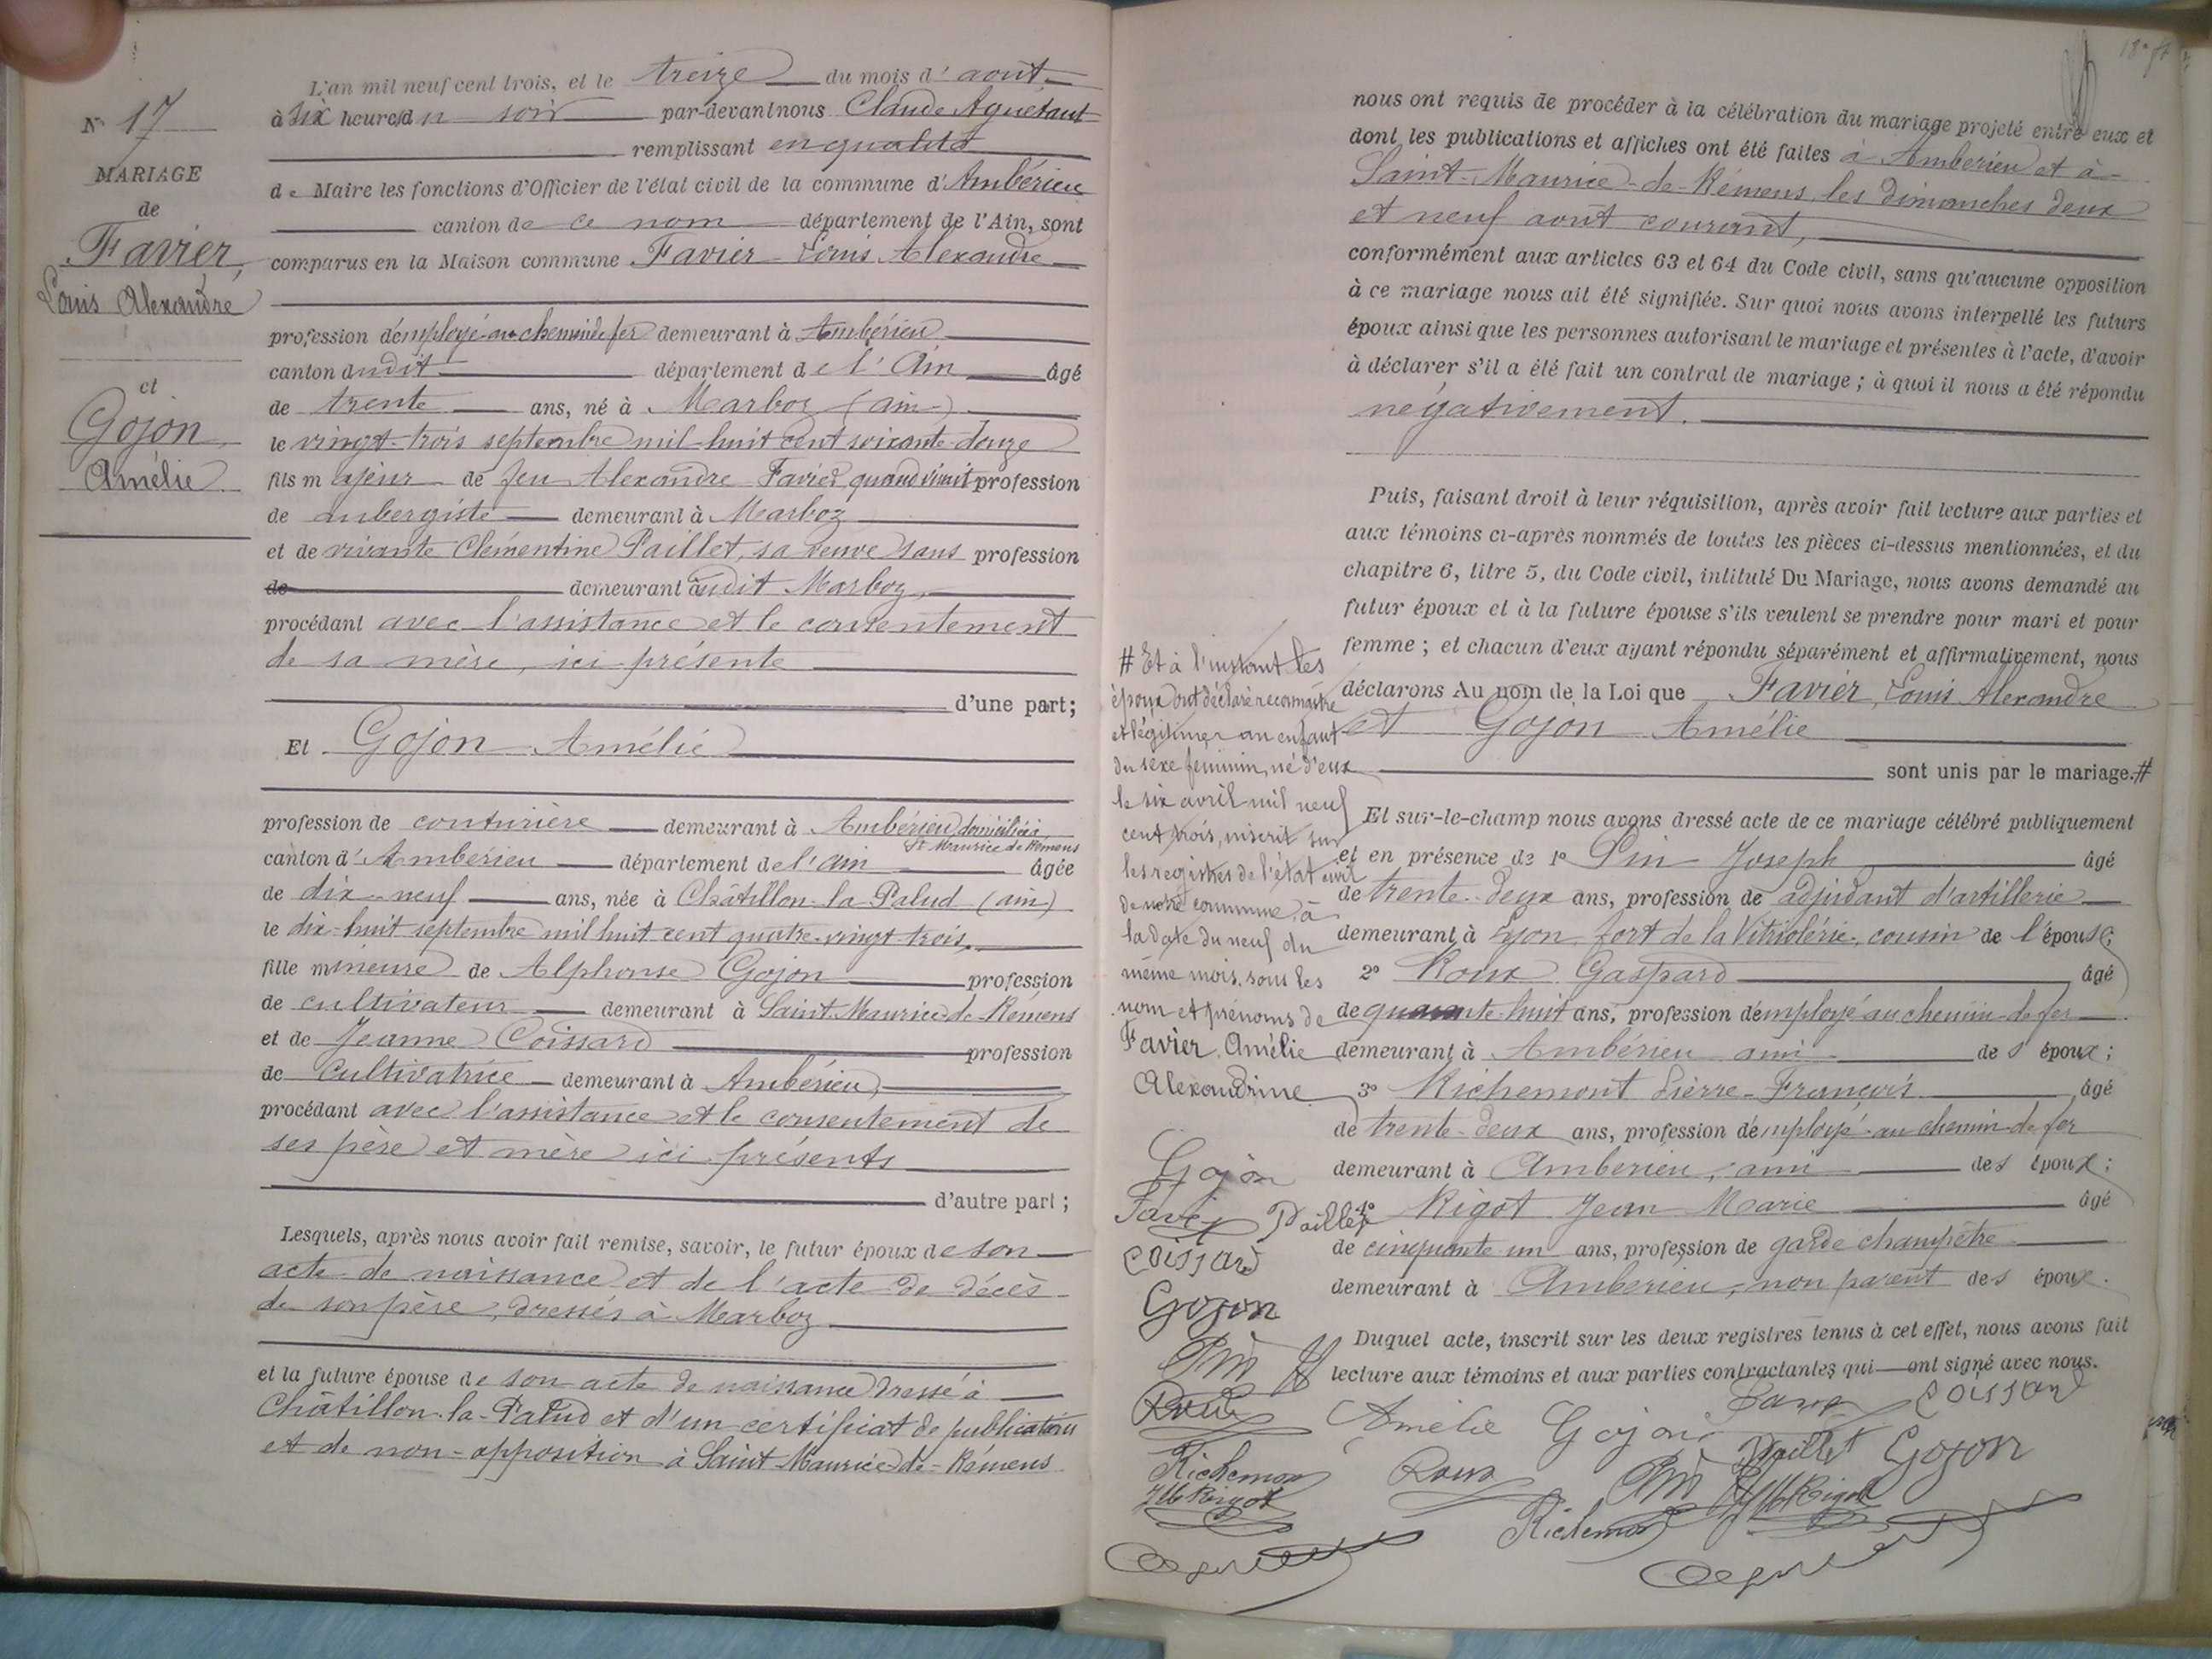 N° 17
MARIAGE
de
Favier,
Louis Alexandre
et
Gojon
Amélie
L'an mil neuf cent trois, et le treize du mois d'août
à six heures du soir par-devant nous Claude Aguétant
remplissant en qualité
de Maire les fonctions d'Officier de l'état civil de la commune d'Ambérieu
canton de ce nom département de l'Ain, sont
comparus en la Maison commune Favier Louis Alexandre
profession d'employé au chemin de fer demeurant à Ambérieu
canton dudit département de l'Ain âgé
de trente ans, né à Marboz (ain)
le vingt-trois septembre mil huit cent soixante-douze
fils majeur de feu Alexandre Favier quand vivait profession
de aubergiste demeurant à Marboz
et de vivante Clémentine Paillet, sa veuve sans profession
de demeurant audit Marboz,
procédant avec l'assistance et le consentement
de sa mère, ici présente
d'une part;
Et Gojon Amélie
profession de couturière demeurant à Ambérieu, domiciliée à
St Maurice de Rémens
canton d'Ambérieu département de l'ain âgée
de dix-neuf ans, née à Châtillon-la-Palud (ain)
le dix-huit septembre mil huit cent quatre-vingt-trois,
fille mineure de Alphonse Gojon profession
de cultivateur demeurant à Saint-Maurice-de-Rémens
et de Jeanne Coissard profession
de cultivatrice demeurant à Ambérieu,
procédant avec l'assistance et le consentement de
ses père et mère ici présents
d'autre part;
Lesquels, après nous avoir fait remise, savoir, le futur époux de son
acte de naissance et de l'acte de décès
de son père, dressés à Marboz
et la future épouse de son acte de naissance dressé à
Châtillon-la-Palud et d'un certificat de publication
et de non-opposition à Saint-Maurice-de-Rémens
nous ont requis de procéder à la célébration du mariage projeté entre eux et
dont les publications et affiches ont été faites à Ambérieu et à
Saint-Maurice-de-Rémens, les dimanches deux
et neuf août courant,
conformément aux articles 63 et 64 du Code civil, sans qu'aucune opposition
à ce mariage nous ait été signifiée. Sur quoi nous avons interpellé les futurs
époux ainsi que les personnes autorisant le mariage et présentes à l'acte, d'avoir
à déclarer s'il a été fait un contrat de mariage; à quoi il nous a été répondu
négativement.
Puis, faisant droit à leur réquisition, après avoir fait lecture aux parties et
aux témoins ci-après nommés de toutes les pièces ci-dessus mentionnées, et du
chapitre 6, titre 5, du Code civil, intitulé Du Mariage, nous avons demandé au
futur époux et à la future épouse s'ils veulent se prendre pour mari et pour
femme; et chacun d'eux ayant répondu séparément et affirmativement, nous
déclarons Au nom de la Loi que Favier, Louis Alexandre
et Gojon Amélie
sont unis par le mariage. #
Et sur-le-champ nous avons dressé acte de ce mariage célébré publiquement
et en présence de 1° Pin Joseph âgé
de trente-deux ans, profession de adjudant d'artillerie
demeurant à Lyon fort de la Vitriolerie, cousin de l'épouse;
2° Roux Gaspard âgé
de quarante-huit ans, profession d'employé au chemin de fer
demeurant à Ambérieu ami des époux;
3° Richemont Pierre-François âgé
de trente-deux ans, profession d'employé au chemin de fer
demeurant à Ambérieu, ami des époux;
4° Rigot Jean Marie âgé
de cinquante un ans, profession de garde champêtre
demeurant à Ambérieu, non parent des époux.
Duquel acte, inscrit sur les deux registres tenus à cet effet, nous avons fait
lecture aux témoins et aux parties contractantes qui ont signé avec nous.
# Et à l'instant les
époux ont déclaré reconnaître
et légitimer un enfant
du sexe féminin, né d'eux
le six avril mil neuf
cent trois, inscrit sur
les registres de l'état civil
de notre commune, à
la date du neuf du
même mois, sous les
nom et prénoms de
Favier, Amélie
Alexandrine
Gojon
Favier Paillet
Coissard
Gojon
Pin
Roux
Richemont
JM Rigot
Favier Coissard
Amélie Gojon
Paillet Gojon
Roux Pin JM Rigot
Richemont